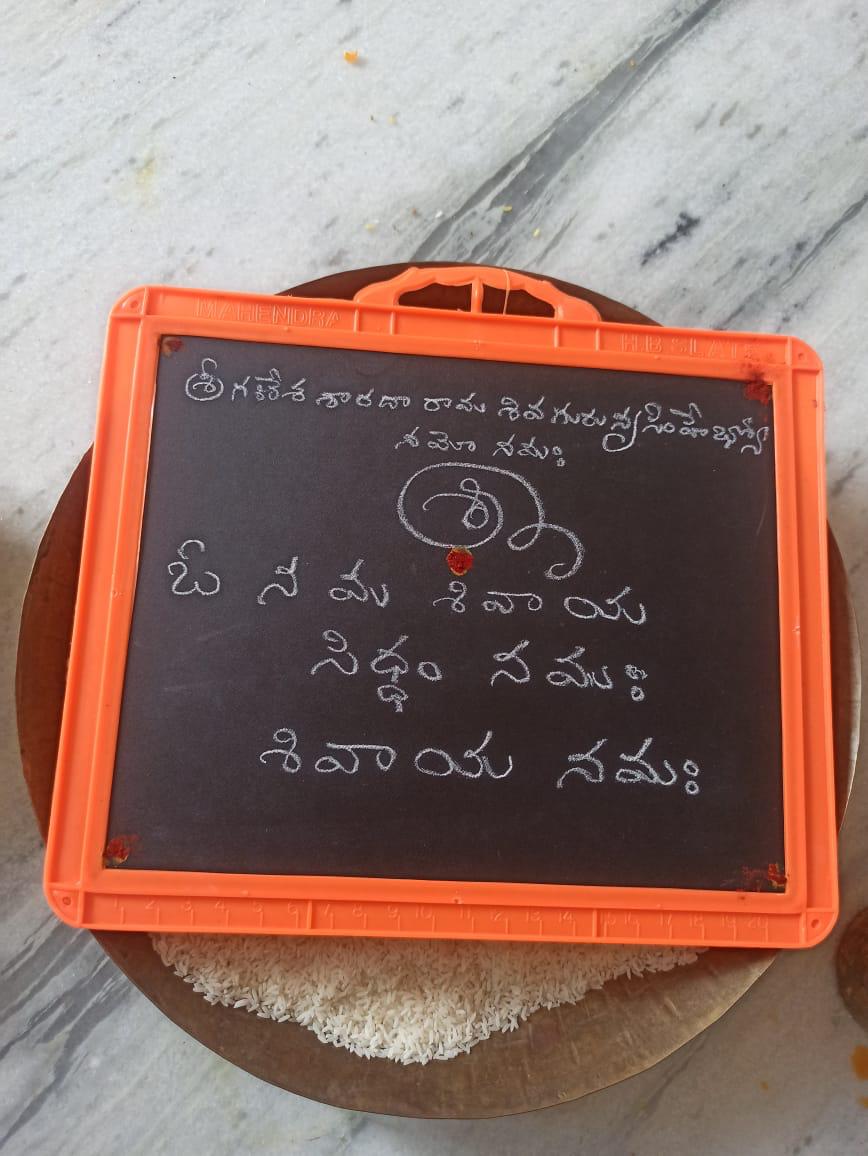 MAHENDRA H.B SLATE
శ్రీ గణేశ శారదా రామ శివ గురు నృసింహేభ్యో
నమో నమః
శ్రీ
ఓ న మ శివాయ
సిద్ధం నమః
శివాయ నమః
1 2 3 4 5 6 7 8 9 10 11 12 13 14 15 16 17 18 19 20